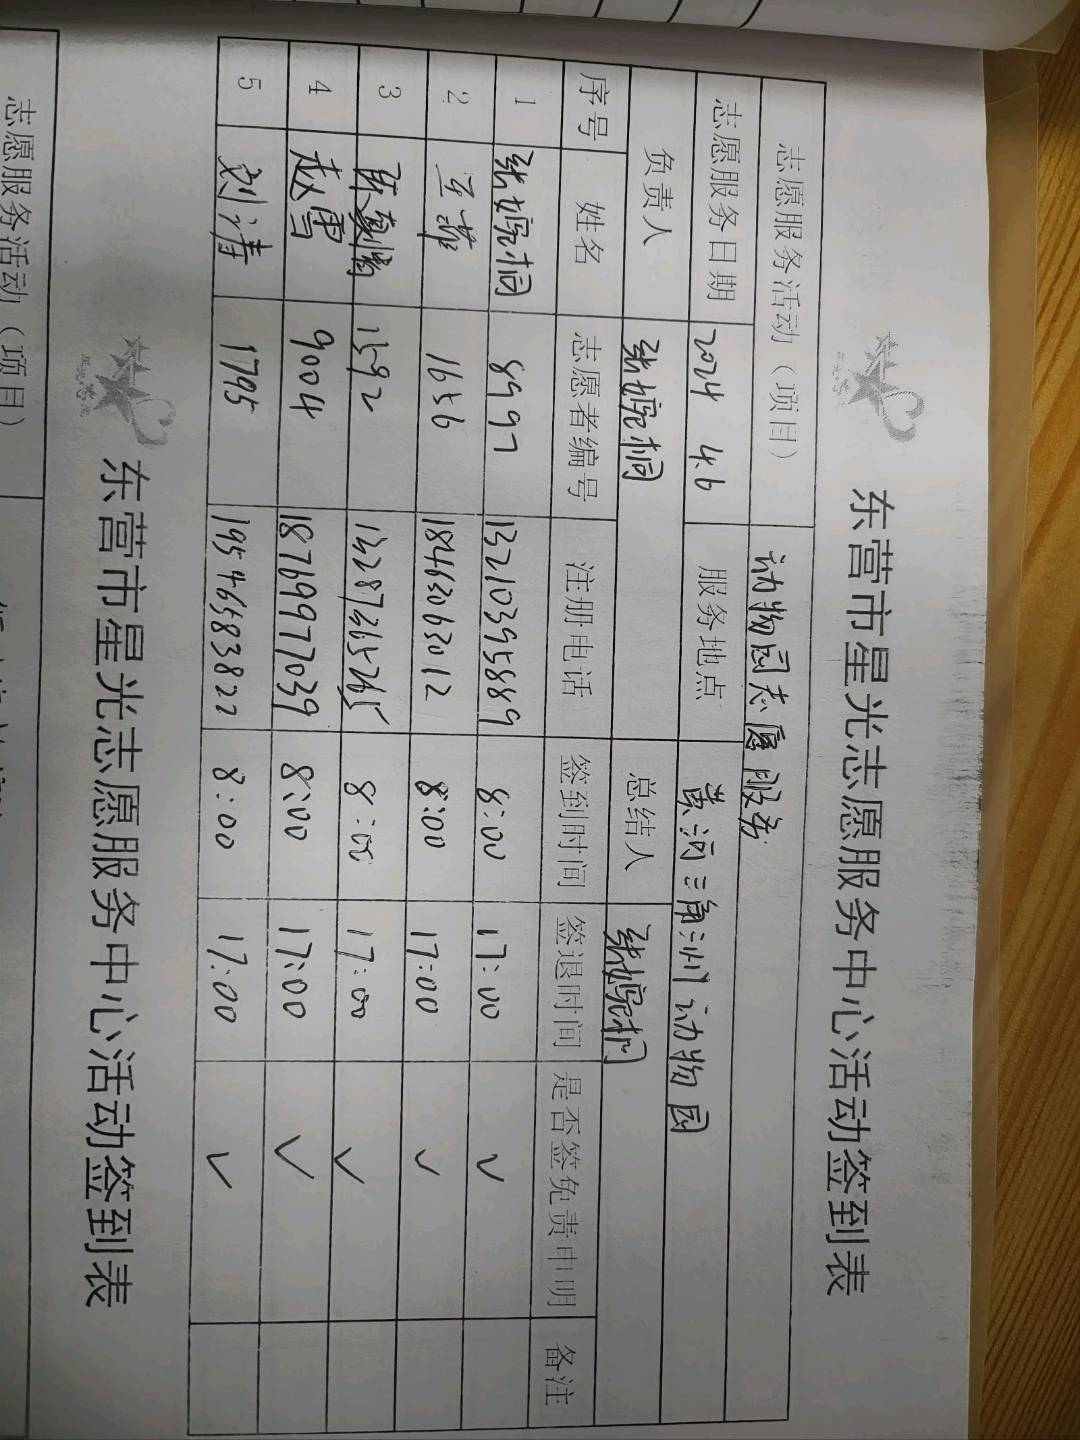 东营市星光志愿服务中心活动签到表
志愿服务活动（项目） 动物园志愿服务
志愿服务日期 2024 4.6 服务地点 黄河三角洲动物园
负责人 张婉桐 总结人 张婉桐
序号 姓名 志愿者编号 注册电话 签到时间 签退时间 是否签免责申明 备注
1 张婉桐 8997 13210395889 8:00 17:00 ✓
2 1656 18463063012 8:00 17:00 ✓
3 1592 8:00 17:00 ✓
4 赵雪 9004 18769977039 8:00 17:00 ✓
5 刘涛 1795 19546583822 8:00 17:00 ✓
东营市星光志愿服务中心活动签到表
志愿服务活动（项目）